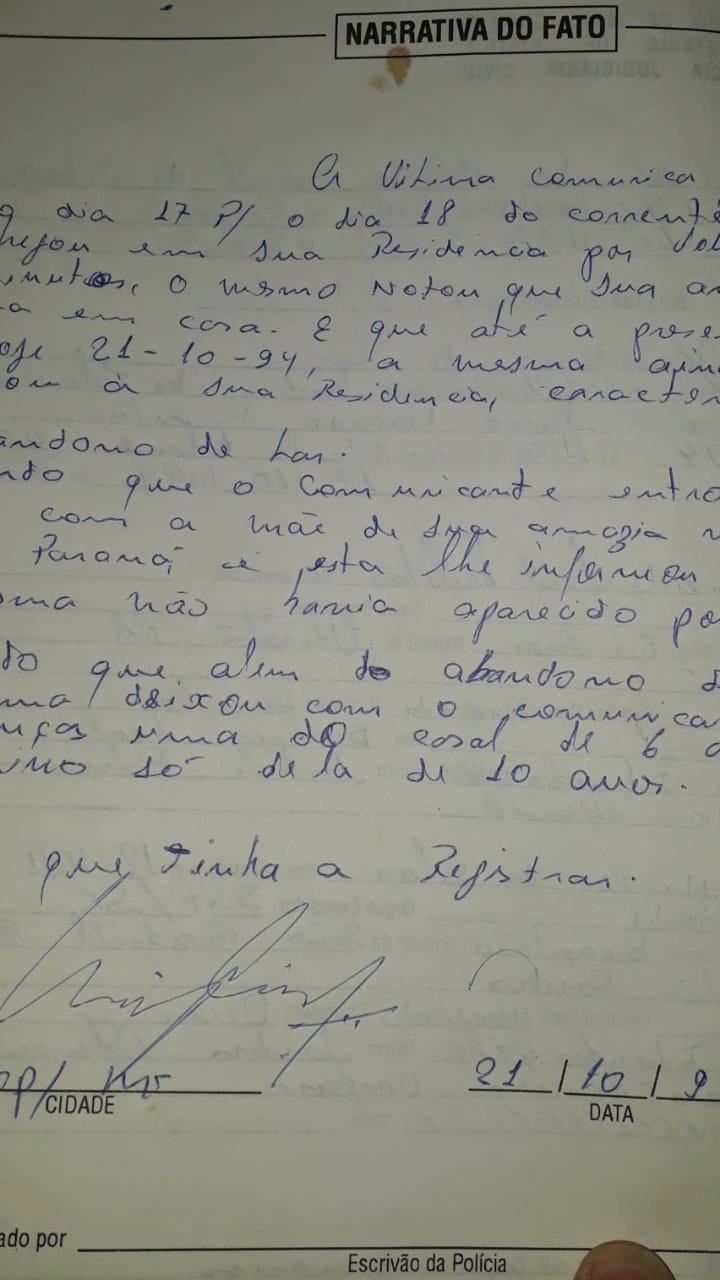 NARRATIVA DO FATO
A Vitima comunica
dia 17 P/ o dia 18 do corrente
hegou em sua Residencia por Vol
inutos, o mesmo Notou que sua am
a em casa. E que até a prese
oje 21-10-94, a mesma ain
ou à sua Residencia, caracter
andono de Lar.
ndo que o Comunicante entro
com a mãe de sua amazia n
Paraná, e esta lhe informou
sma não havia aparecido po
do que, alem do abandono d
ma deixou com o comunica
nças uma do casal de 6 a
ino só dela de 10 anos.
que tinha a Registrar.
OP/ MT
21 / 10 / 9
CIDADE
DATA
ado por
Escrivão da Polícia